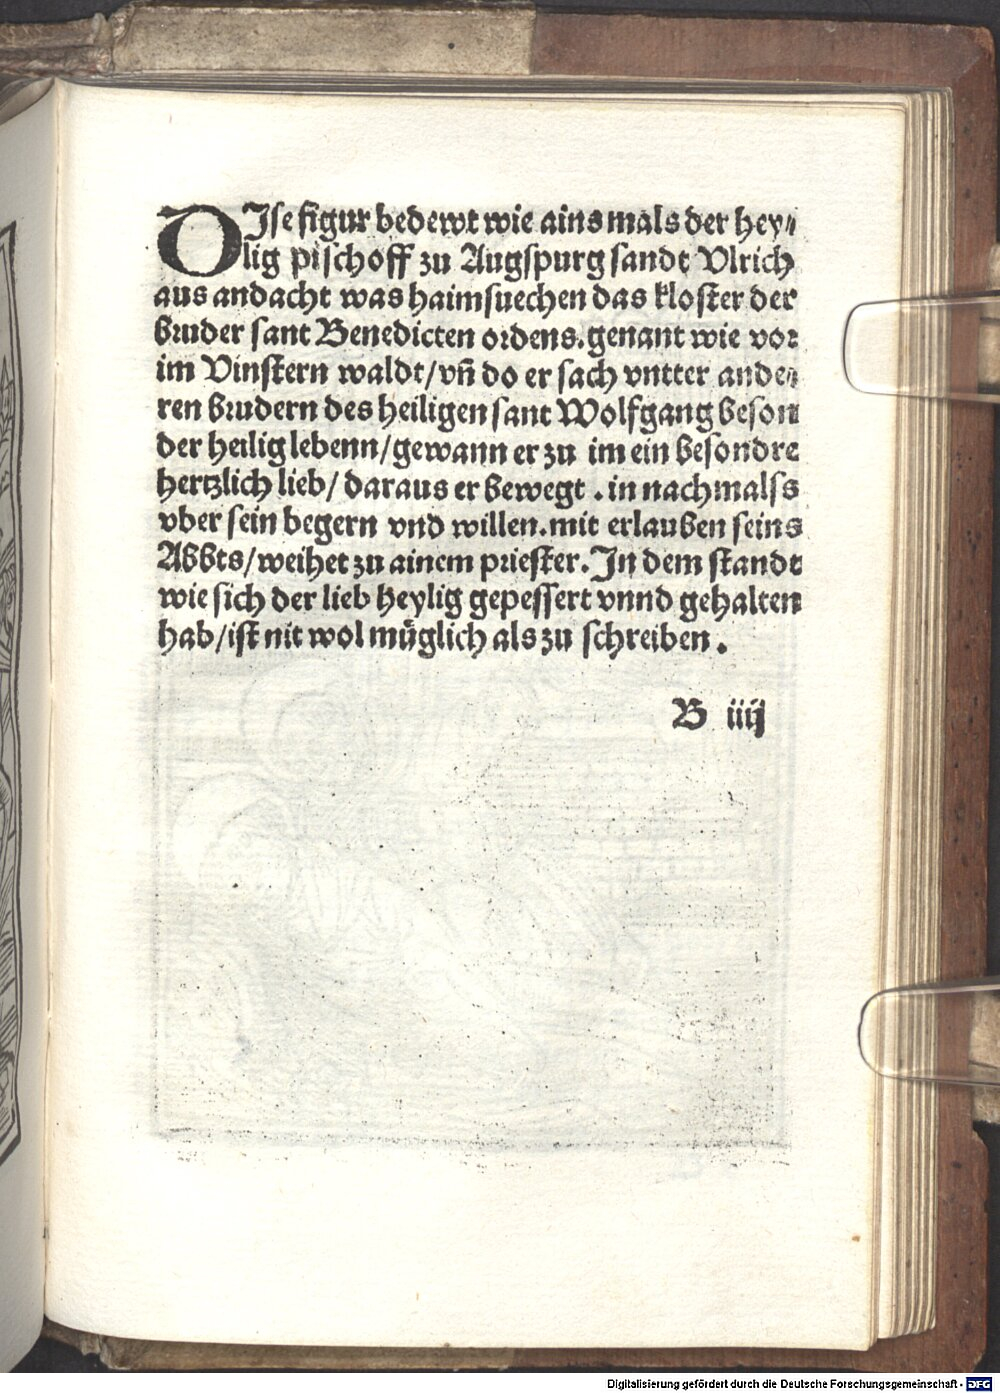 DJse figur bedewt wie ains mals der hey⸗
lig pischoff zu Augspurg sandt Vlrich
aus andacht was haimsuechen das kloster der
bruder sant Benedicten ordens. genant wie vor
im Vinstern waldt/ vñ do er sach vntter ande⸗
ren brudern des heiligen sant Wolfgang beson
der heilig lebenn/ gewann er zu im ein besondre
hertzlich lieb/ daraus er bewegt . in nachmalss
vber sein begern vnd willen. mit erlauben seins
Abbts/ weihet zu ainem priester. In dem standt
wie sich der lieb heylig gepessert vnnd gehalten
hab/ ist nit wol müglich als zu schreiben .
B iiij
Digitalisierung gefördert durch die Deutsche Forschungsgemeinschaft - DFG